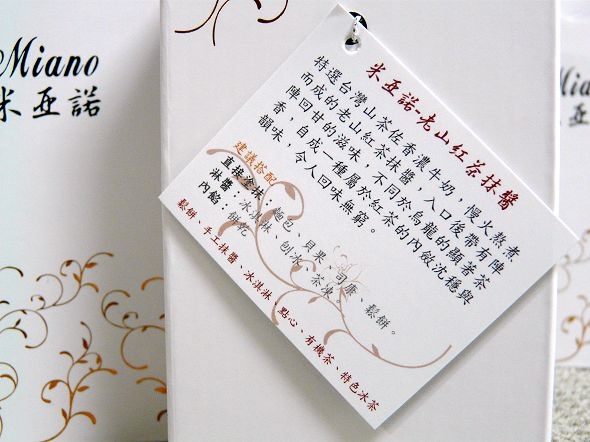 Miano
米亞諾
米亞諾-老山紅茶抹醬
特選台灣山茶佐香濃牛奶，慢火熬煮
而成的老山紅茶抹醬，入口後帶有陣
陣回甘的滋味，不同於烏龍的顯著茶
香，自成一種屬於紅茶的內斂沈穩與
韻味，令人回味無窮。
建議搭配
直接塗抹：麵包、貝果、司康、鬆餅。
淋醬：冰淇淋、刨冰、茶凍
內餡：餅乾
鬆餅、手工抹醬、冰淇淋、點心、有機茶、特色冰茶
Mia
米亞